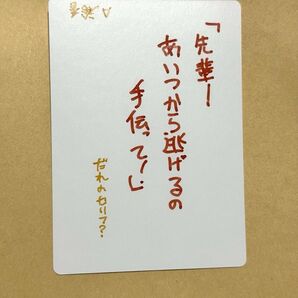 「先輩ー
あいつから逃げるの
手伝ってー」
だれのセリフ?